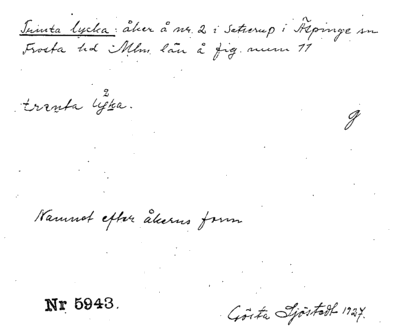 Trinta lycka: åker å nr. 2 i Setterup i Äspinge sn
Frosta hd Mlm. län å fig. num 11
2
trenta lyka.
g
Namnet efter åkerns form
Nr 5943.
Gösta Sjöstedt 1927.